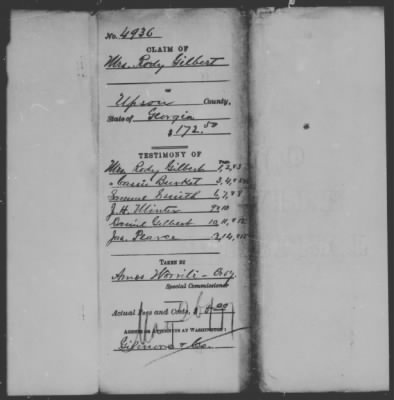 No. 4936
CLAIM OF
Mrs. Rody Gilbert
OF
Upson County,
State of Georgia
$172.50
TESTIMONY OF
Page.
Mrs. Rody Gilbert 1, 2, + 3
" Cassie Burket 3, 4,
Samuel Smith 6, 7, + 8
J. H. 9 + 10
Daniel Gilbert 10, 11, + 12
Jas. Pearce
TAKEN BY
Amos Worrill
Special Commissioner
Actual Fees and Costs, $
ADDRESS OR ATTORNEYS AT WASHINGTON:
Gilmore & Co.